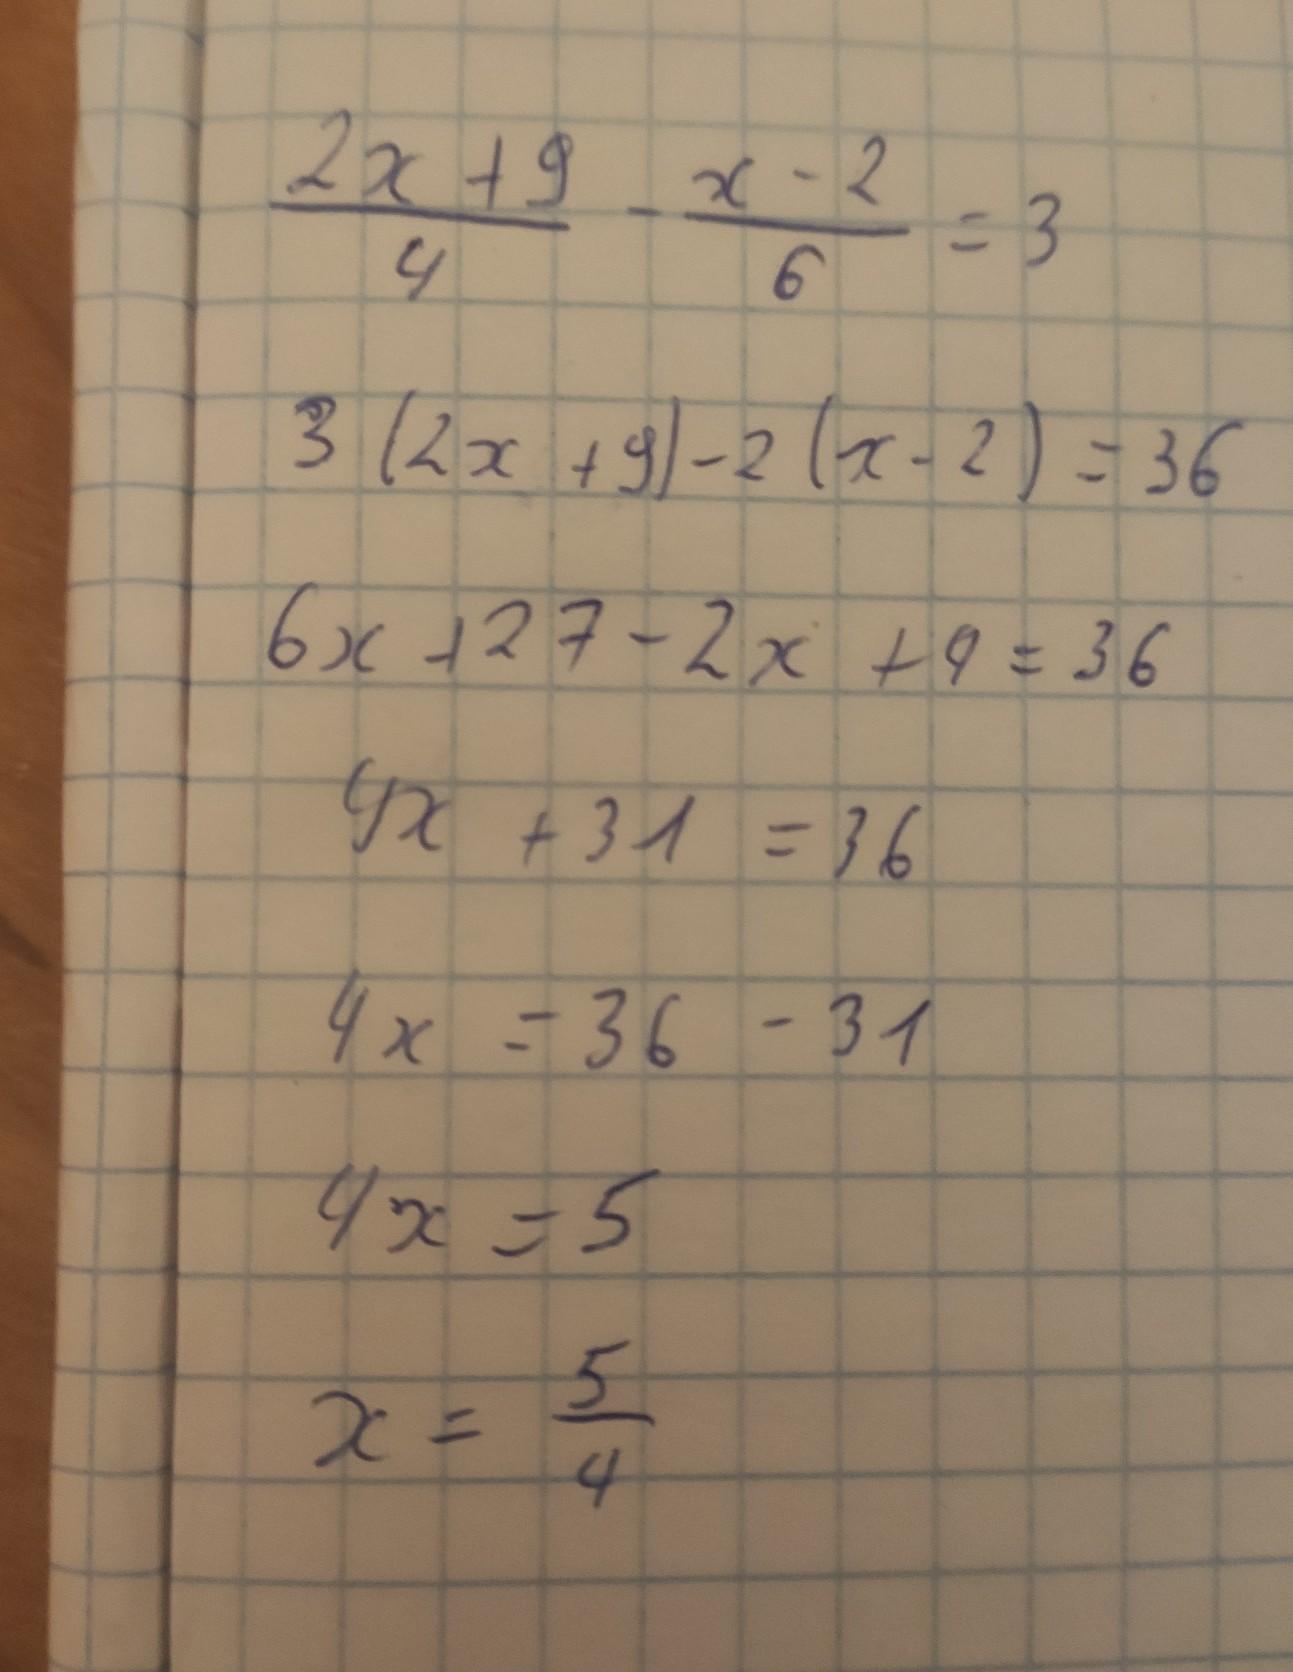 (2x + 9)/4 - (x - 2)/6 = 3
3 (2x + 9) - 2 (x - 2) = 36
6x + 27 - 2x + 4 = 36
4x + 31 = 36
4x = 36 - 31
4x = 5
x = 5/4